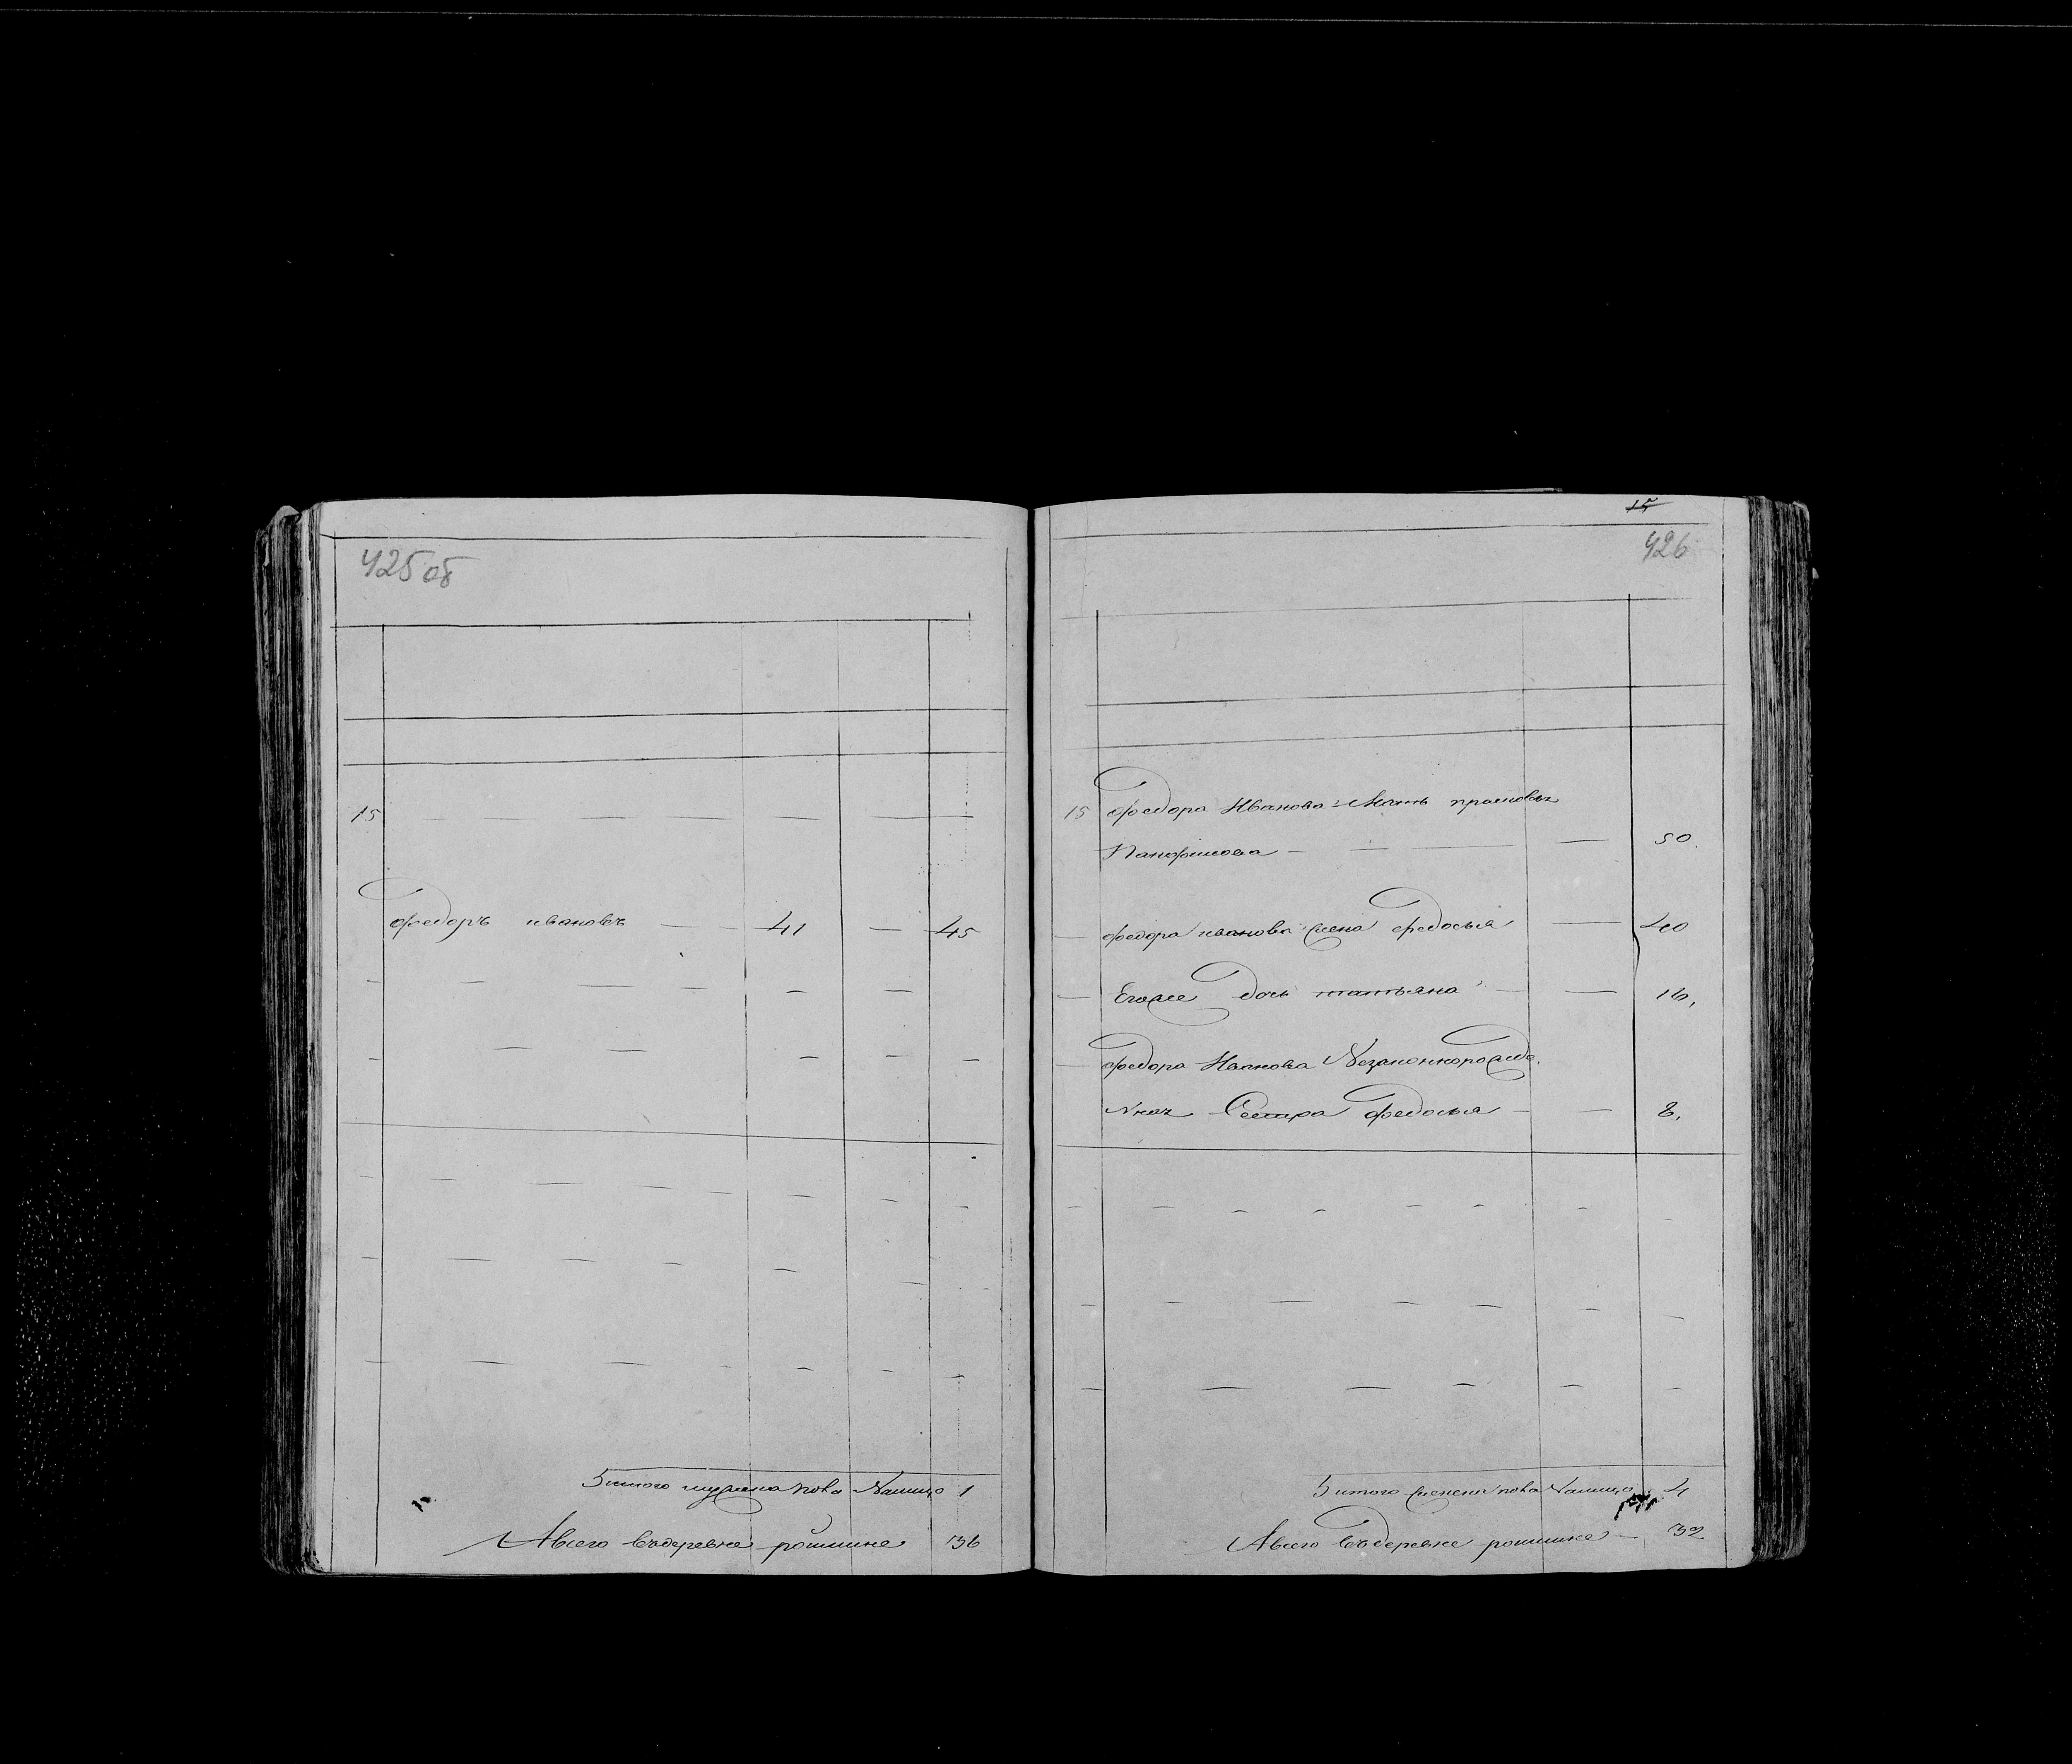 425об
15
Федоръ ивановъ 41 45
Итого мужеска пола Налицо 1
Авсего въдеревне рошшине 36
15
426
15 Федора Иванова Мать прасковья
Панфилова 50.
Федора иванова жена федосья 40
Егоже дочь татьяна 16.
Федора Иванова
Сестра федосья 8.
Итого женска пола Налицо 4
Авсего въдеревне рошшине 32